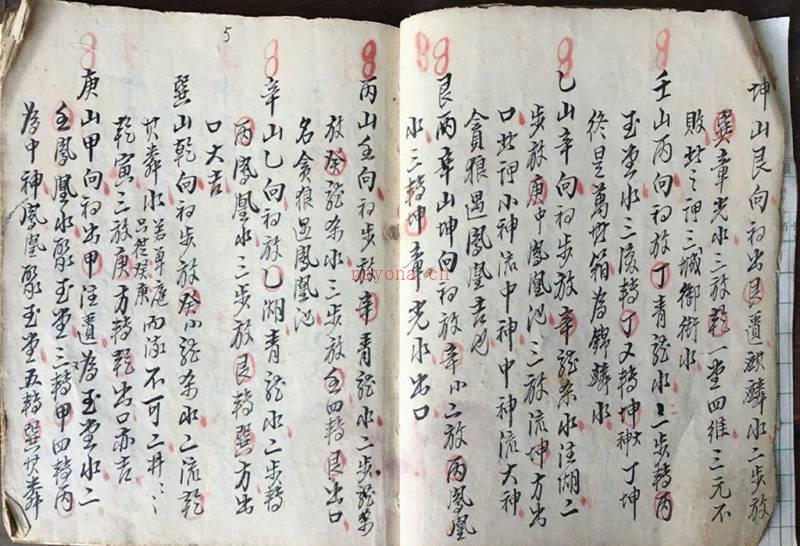 坤山艮向初出艮遺麒麟水二步放
巽章光水三放乾一堂四維三元不
敗此之神三城御街水
壬山丙向初放丁青龍水二步轉丙
玉堂水三後轉丁又轉坤神丁坤
終是萬世箱為錦麟水
乙山辛向初步放辛龍朵水注湖二
步放庚中鳳凰池三放流坤方出
口此神小神流中神中神流大神
貪狼遇鳳凰吉也
艮丙辛山坤向初放辛小二放丙鳳凰
水三轉坤章光水出口
5
丙山壬向初步放辛青龍水二步龍朵
放癸龍朵水三步放壬四轉艮出口
名貪狼遇鳳凰池
辛山乙向初放乙湖青龍水二步轉
丙鳳凰水三步放艮轉巽方出
口大吉
巽山乾向初步放癸小龍朵水二流乾
甘麟水若草庭呂從癸庚而流不可二井
乾寅三放庚方轉乾出口亦吉
庚山甲向初出甲注遺為玉堂水二
壬鳳凰水聚玉堂三轉甲四轉丙
為中神鳳凰聚玉堂五轉巽甘麟
nayona.cn